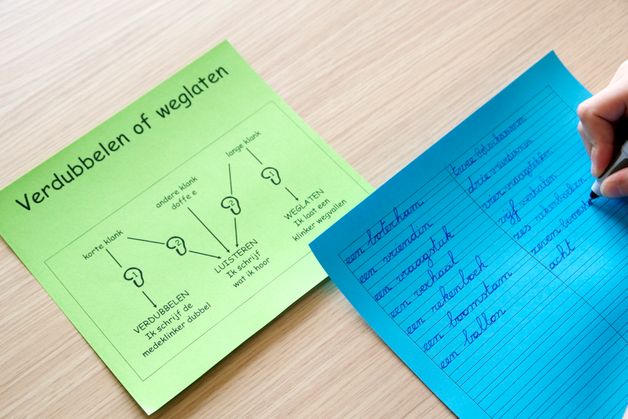 Verdubbelen of weglaten
korte klank
andere klank
doffe e
lange klank
VERDUBBELEN
Ik schrijf de
medeklinker dubbel
LUISTEREN
Ik schrijf
wat ik hoor
WEGLATEN
Ik laat een
klinker wegvallen
een boterham
een vriendin
een vraagstuk
een verhaal
een rekenboek
een boomstam
een ballon
twee
drie
vier
vijf verhalen
zes
zeven
acht